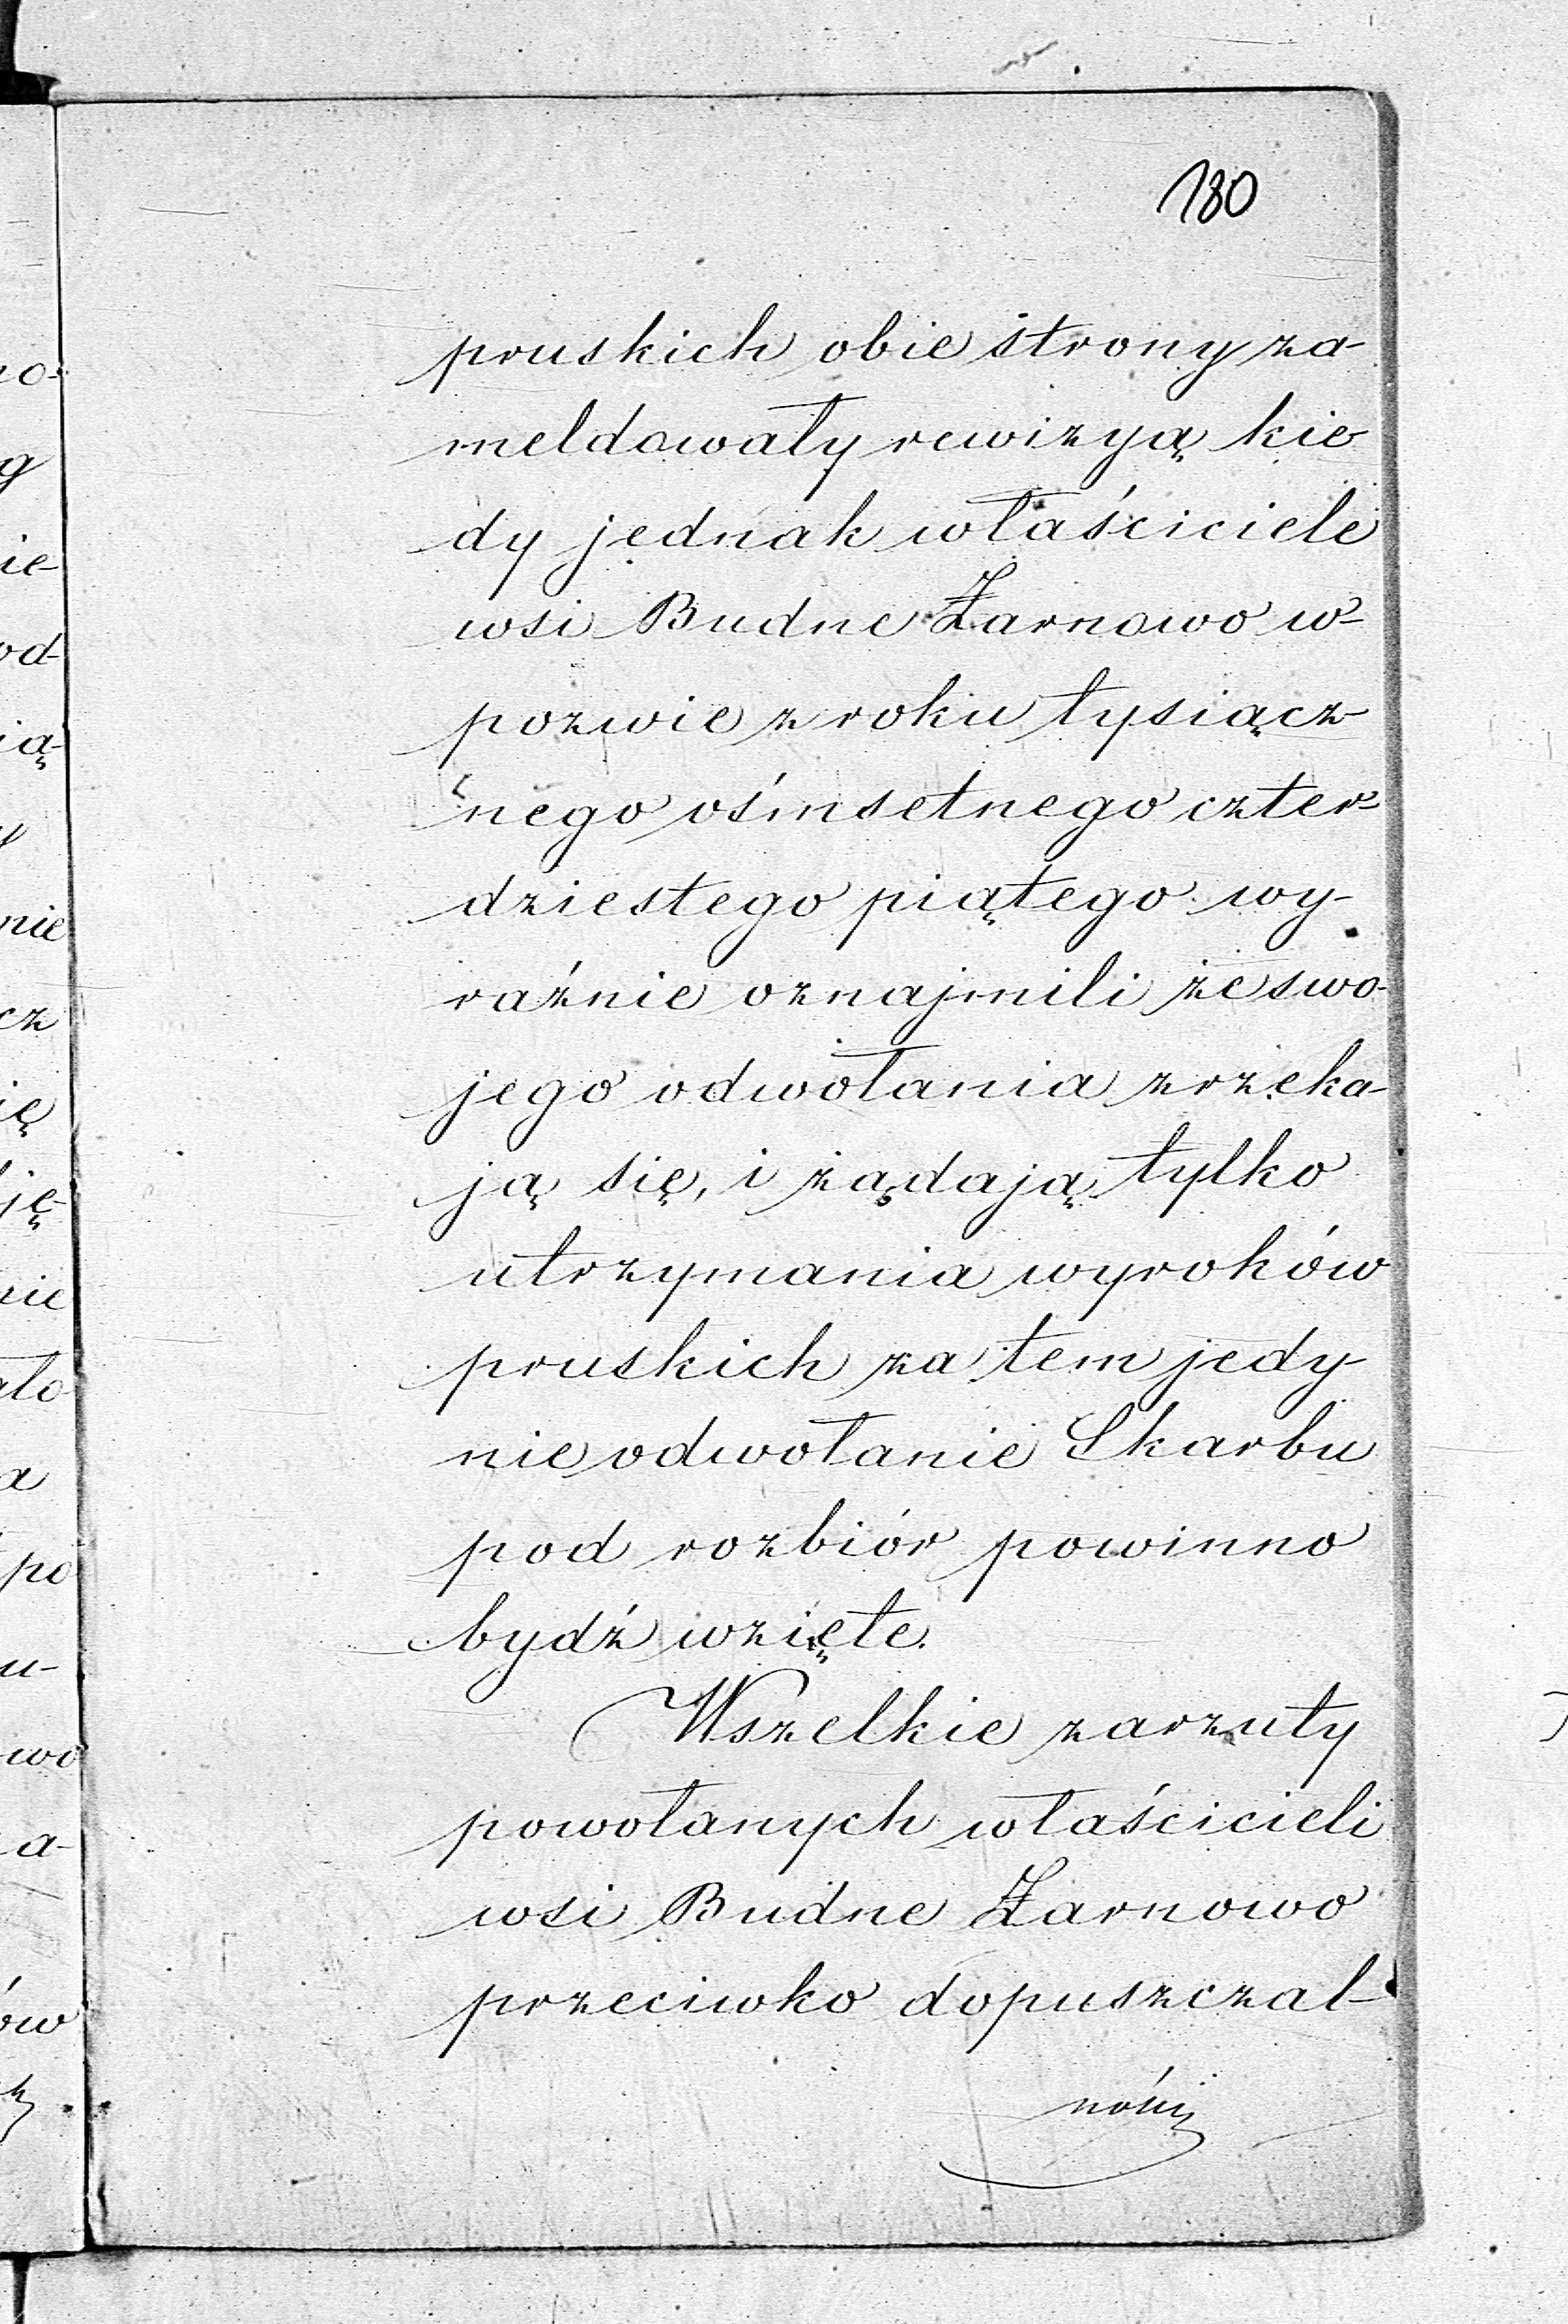 180
pruskich obie strony za-
meldowały rewizyą kie
dy jednak właściciele
wsi Budne Żarnowo w-
pozwie z roku tysiącz-
nego ośmsetnego czter-
dziestego piątego wy-
raźnie oznajmili że swo-
jego odwołania zrzeka-
ją się, i żądają tylko
utrzymania wyroków
pruskich za tem jedy-
nie odwołanie Skarbu
pod rozbiór powinno
bydź wzięte.
Wszelkie zarzuty
powołanych właścicieli
wsi Budne Żarnowo
przeciwko dopuszczal-
ności